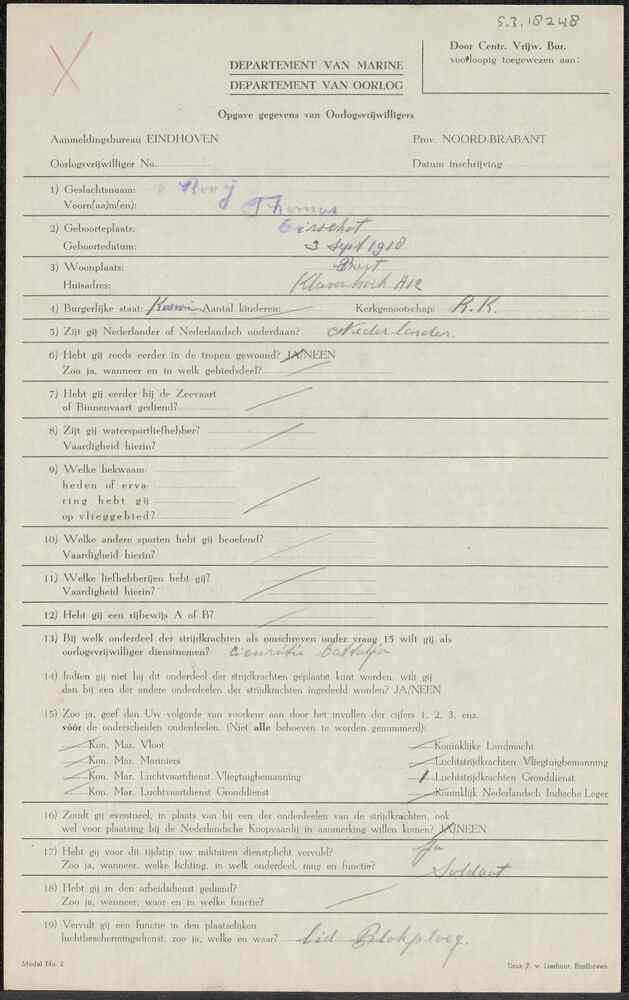 S.3.18248
Door Centr. Vrijw. Bur.
voorloopig toegewezen aan:
DEPARTEMENT VAN MARINE
DEPARTEMENT VAN OORLOG
Opgave gegevens van Oorlogsvrijwilligers
Aanmeldingsbureau EINDHOVEN
Prov. NOORD-BRABANT
Oorlogsvrijwilliger No.
Datum inschrijving
1) Geslachtsnaam: v Rooij
Voorn(aa)m(en): Thomas
2) Geboorteplaats: Oirschot
Geboortedatum: 3 Sept 1918
3) Woonplaats: Best
Huisadres: Klaverhoek A12
4) Burgerlijke staat: Aantal kinderen: Kerkgenootschap: R.K.
5) Zijt gij Nederlander of Nederlandsch onderdaan? Nederlander.
6) Hebt gij reeds eerder in de tropen gewoond? JA/NEEN
Zoo ja, wanneer en in welk gebiedsdeel?
7) Hebt gij eerder bij de Zeevaart
of Binnenvaart gediend?
8) Zijt gij watersportliefhebber?
Vaardigheid hierin?
9) Welke bekwaam-
heden of erva-
ring hebt gij
op vlieggebied?
10) Welke andere sporten hebt gij beoefend?
Vaardigheid hierin?
11) Welke liefhebberijen hebt gij?
Vaardigheid hierin?
12) Hebt gij een rijbewijs A of B?
13) Bij welk onderdeel der strijdkrachten als omschreven onder vraag 15 wilt gij als
oorlogsvrijwilliger dienstnemen? bataljon
14) Indien gij niet bij dit onderdeel der strijdkrachten geplaatst kunt worden, wilt gij
dan bij een der andere onderdeelen der strijdkrachten ingedeeld worden? JA/NEEN
15) Zoo ja, geef dan Uw volgorde van voorkeur aan door het invullen der cijfers 1, 2, 3, enz.
vóór de onderscheiden onderdeelen. (Niet alle behoeven te worden genummerd):
Kon. Mar. Vloot
Koninklijke Landmacht
Kon. Mar. Mariniers
Luchtstrijdkrachten Vliegtuigbemanning
Kon. Mar. Luchtvaartdienst Vliegtuigbemanning
1 Luchtstrijdkrachten Gronddienst
Kon. Mar. Luchtvaartdienst Gronddienst
Koninklijk Nederlandsch Indische Leger
16) Zoudt gij eventueel, in plaats van bij een der onderdeelen van de strijdkrachten, ook
wel voor plaatsing bij de Nederlandsche Koopvaardij in aanmerking willen komen? JA/NEEN
17) Hebt gij voor dit tijdstip uw militairen dienstplicht vervuld? Ja
Zoo ja, wanneer, welke lichting, in welk onderdeel, rang en functie? Soldaat
18) Hebt gij in den arbeidsdienst gediend?
Zoo ja, wanneer, waar en in welke functie?
19) Vervult gij een functie in den plaatselijken
luchtbeschermingsdienst, zoo ja, welke en waar? Lid Blokploeg.
Model No. 2
Druk P. v. Leerhout, Eindhoven